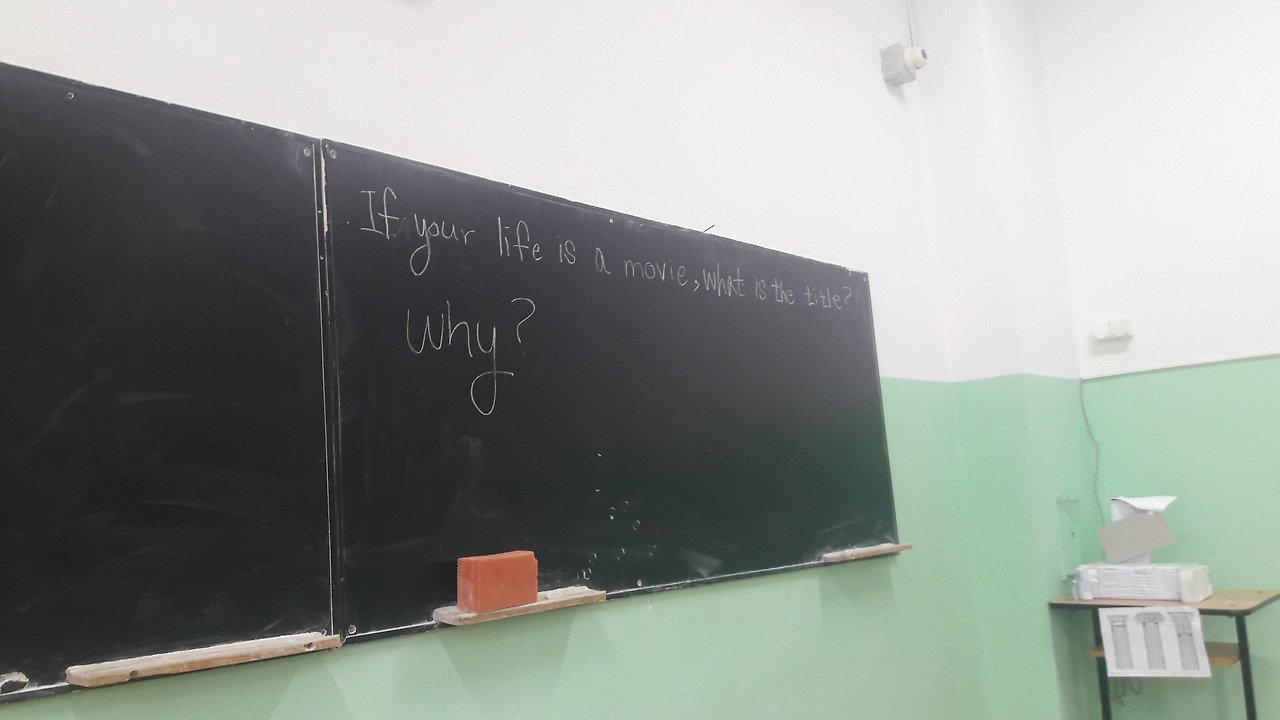 If your life is a movie, what is the title?
Why?